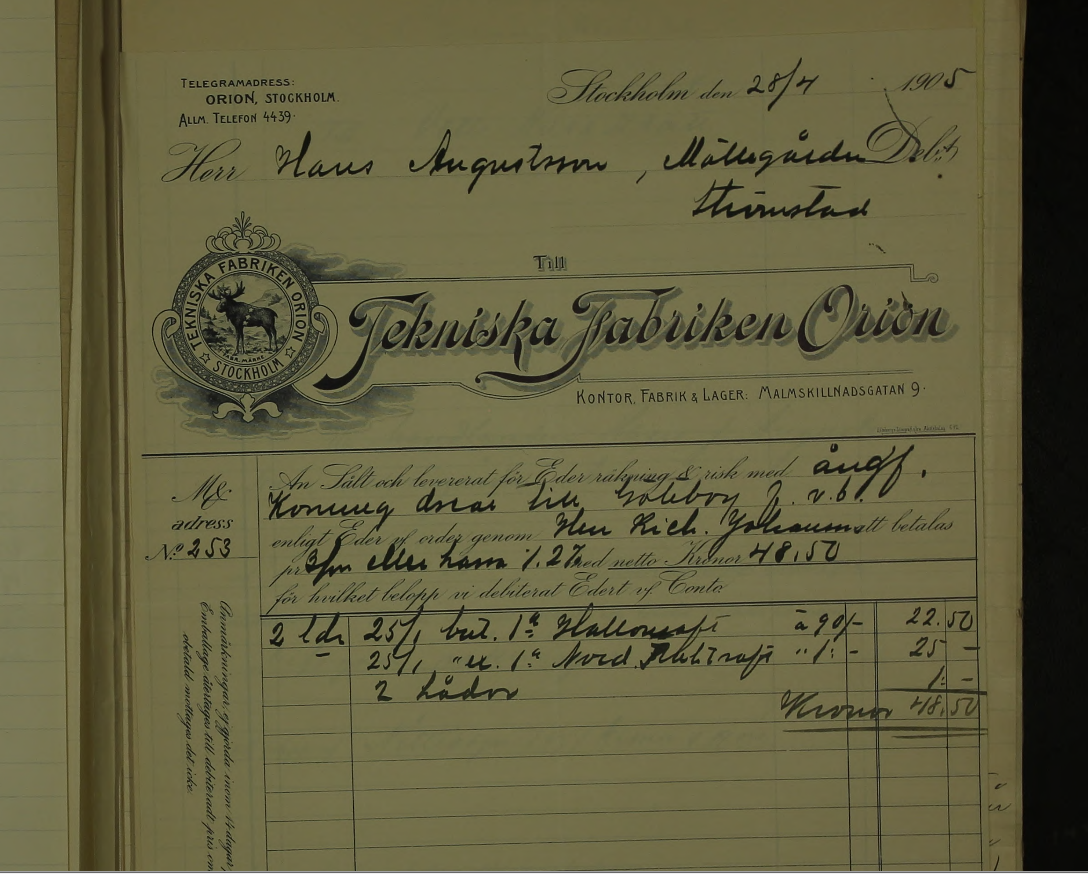 TELEGRAMADRESS:
ORION, STOCKHOLM.
ALLM. TELEFON 4439.
Stockholm den 28/4 1905
Herr Hans Augustsson, Möllegården Debet
Strömstad
Till
TEKNISKA FABRIKEN ORION
FABR. MÄRKE
STOCKHOLM
Tekniska Fabriken Orion
KONTOR, FABRIK & LAGER: MALMSKILLNADSGATAN 9.
An Sålt och levererat för Eder räkning & risk med ångf.
Konung Oscar till Göteborg
M&
adress
No 253
enligt Eder v/ order genom Herr Rich. Johansson att betalas
pr 3/m eller kassa med netto Kronor 48,50
för hvilket belopp vi debiterat Edert v/ Conto.
2 ldr 25/1 but. 1a Hallonsaft à 90/- 22.50
25/1 " 1a Nord. " 1:- 25 -
2 Lådor 1: -
Kronor 48,50
Anmärkningar ej gjorda inom 14 dagar,
Emballage återtages till debiteradt pris
obetald mottages det icke.